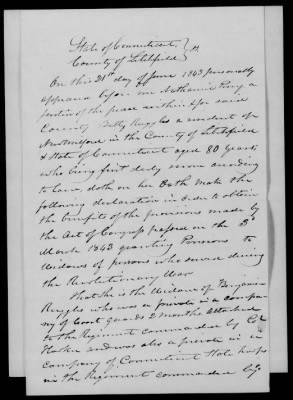 State of Connecticut }
County of Litchfield } ss
On this 21st day of June 1843 personally
appeared before me Nathaniel Perry a
justice of the peace within & for said
County Betty Ruggles a resident of
New Milford in the County of Litchfield
& State of Connecticut aged 80 years
who being first duly sworn according
to law, doth on her Oath make the
following declaration in order to obtain
the benefits of the provisions made by
the Act of Congress passed on the 3d
March 1843 granting Pensions to
Widows of persons who served during
the Revolutionary War
That she is the Widow of Benjamin
Ruggles who was a private in a compa-
ny of Coast guards 2 months attached
to the Regiment commanded by Col
and was also a private in a
company of Connecticut State troops
in the Regiment commanded by